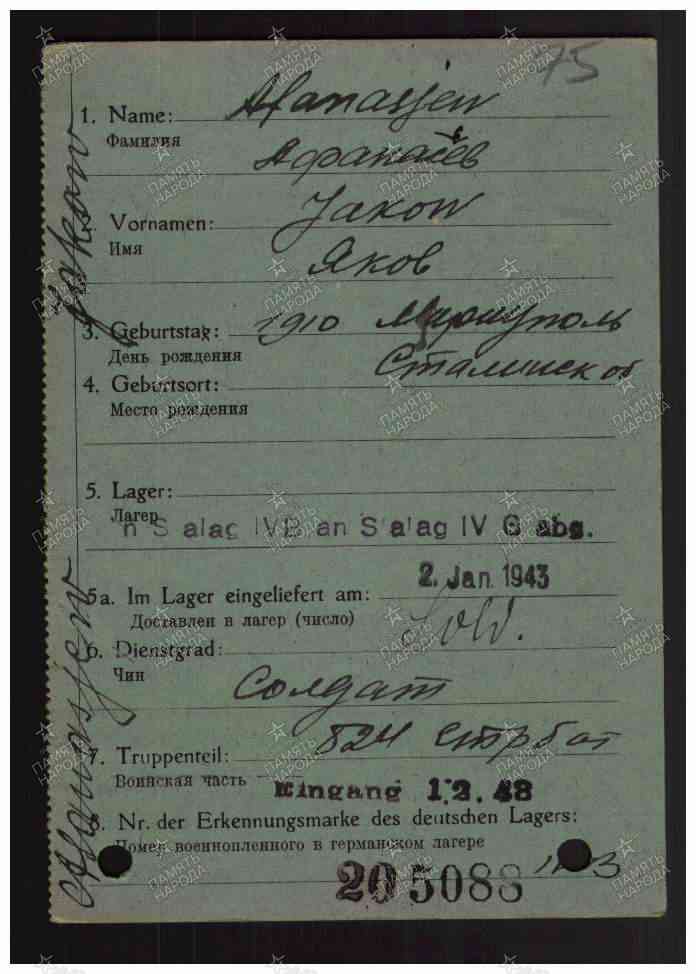 75
1. Name: Afanasjew
Фамилия Афанасев
Vornamen: Jakow
Имя Яков
3. Geburtstag: 1910 Мариуполь
День рождения Сталинск об
4. Geburtsort:
Место рождения
5. Lager:
Лагер
n S alag IVB an S alag IV G abg.
2. Jan. 1943
5a. Im Lager eingeliefert am:
Доставлен в лагер (число)
Sold.
6. Dienstgrad:
Чин Солдат
7. Truppenteil: 824 стр бат
Воинская часть
Eingang 1.2.43
8. Nr. der Erkennungsmarke des deutschen Lagers:
Номер военнопленного в германском лагере
205088
Afanasjew Jakow
ПАМЯТЬ НАРОДА